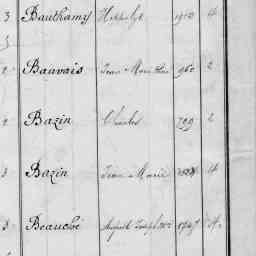 3 Bauthamy Hippolyte 1910 4
2 Bauvais Jean 960 2
2 Bazin Charles 799 2
3 Bazin Jean Marie 4
3 Beauché Auguste Joseph